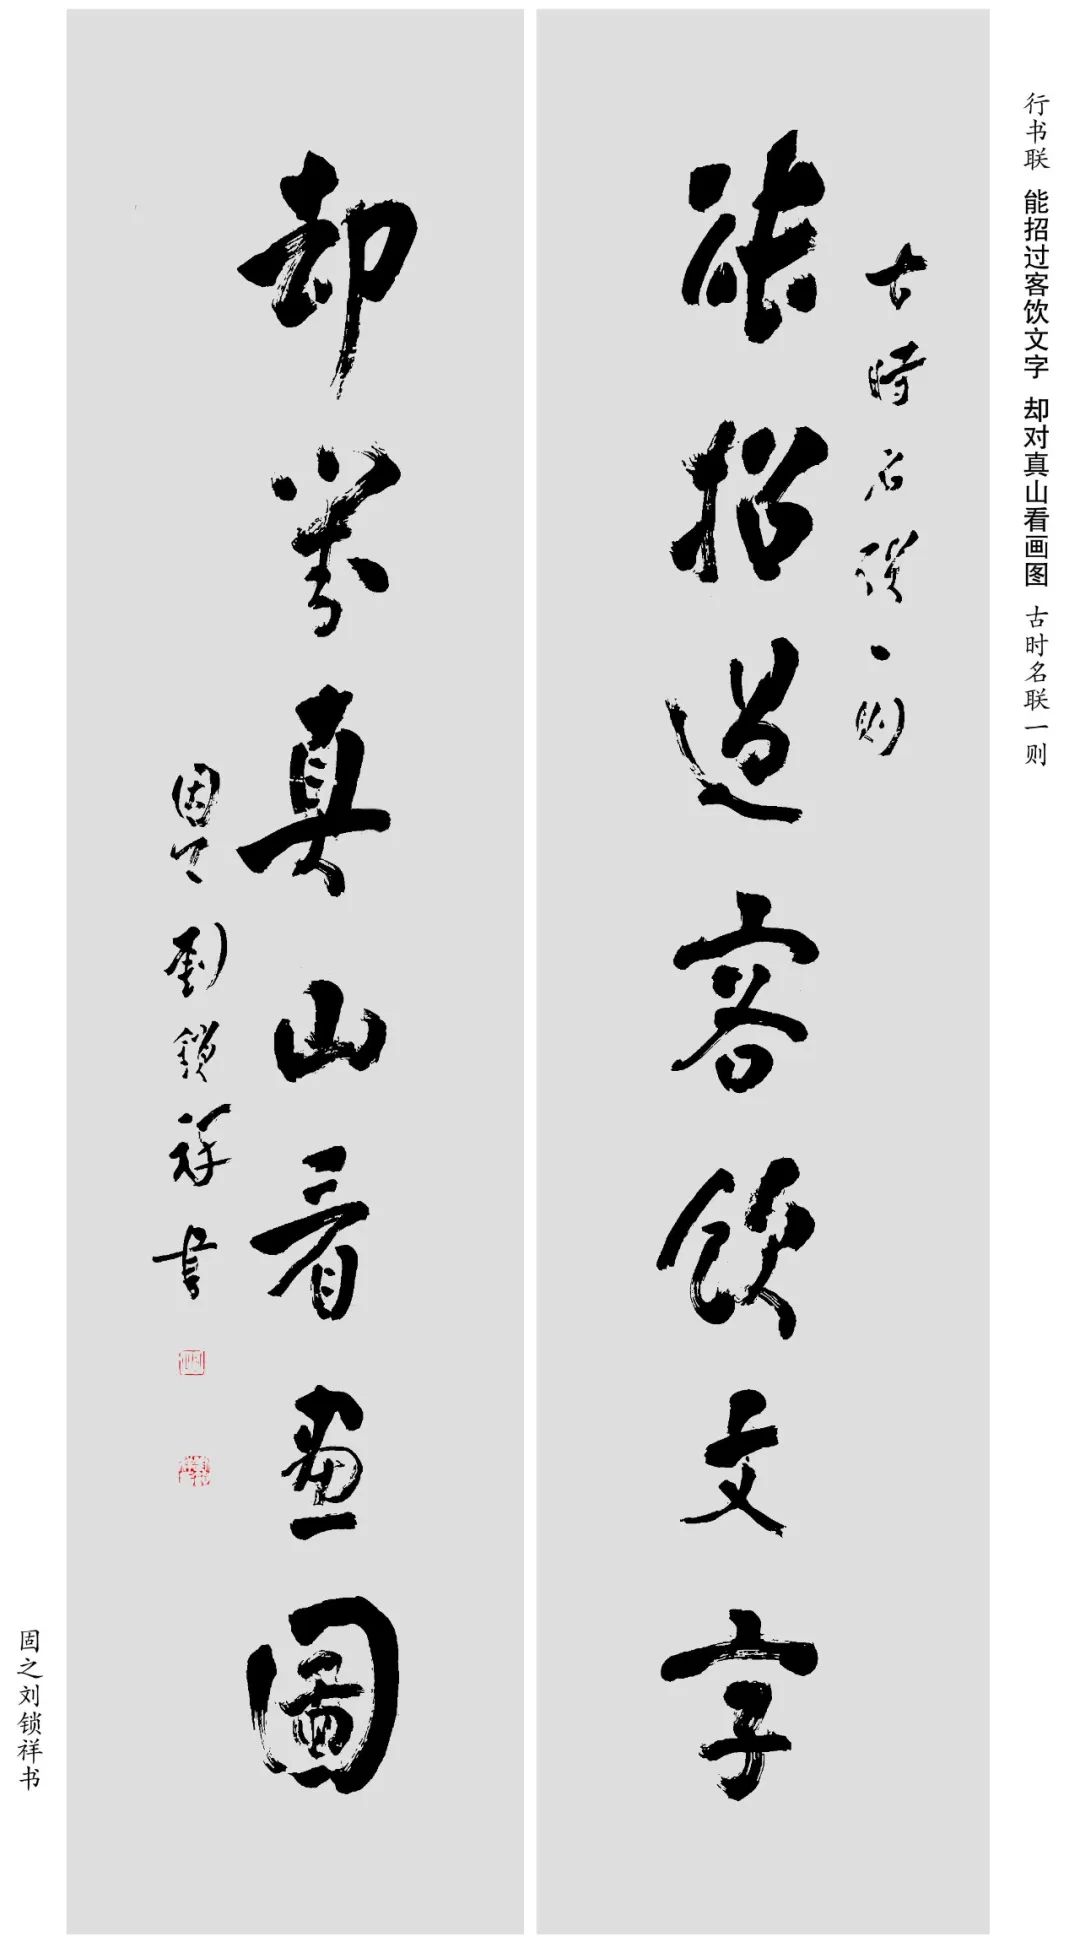 行书联 能招过客饮文字 却对真山看画图 古时名联一则
古時名聯一则
能招過客飲文字
却對真山看畫圖
固之劉鎖祥書
固之刘锁祥书